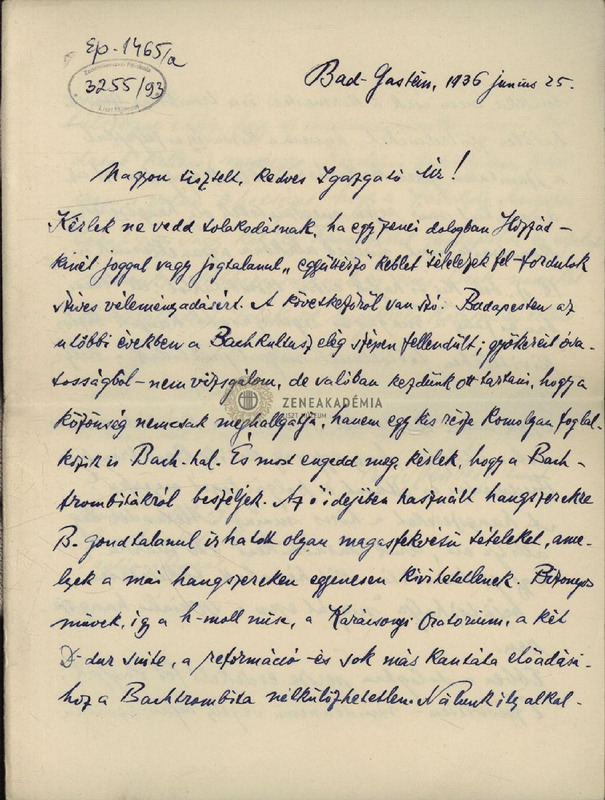 Ep-1465/a
Zeneművészeti Főiskola
3255/93
Liszt Múzeum
Bad-Gastein, 1936 junius 25.
Nagyon tisztelt, kedves Igazgató Úr!
Kérlek ne vedd tolakodásnak, ha egy zenei dologban Hozzád –
kinél joggal vagy jogtalanul „együttérző keblet" tételezek fel – fordulok
szives véleményadásért. A következőről van szó: Budapesten az
utóbbi években a Bachkultusz elég szépen fellendült; gyökereit óva-
tosságból – nem vizsgálom, de valóban kezdünk ott tartani, hogy a
közönség nemcsak meghallgatja, hanem egy kis része komolyan foglal-
kozik is Bach-hal. És most engedd meg, kérlek, hogy a Bach-
trombitákról beszéljek. Az ő idejében használt hangszerekre
B. gondtalanul irhatott olyan magasfekvésű tételeket, ame-
lyek a mai hangszereken egyenesen kivihetetlenek. Bizonyos
művek, igy a h-moll mise, a Karácsonyi Oratorium, a két
D-dur suite, a reformáció- és sok más kantáta előadásá-
hoz a Bachtrombita nélkülözhetetlen. Nálunk ily alkal-
ZENEAKADÉMIA
LISZT MÚZEUM